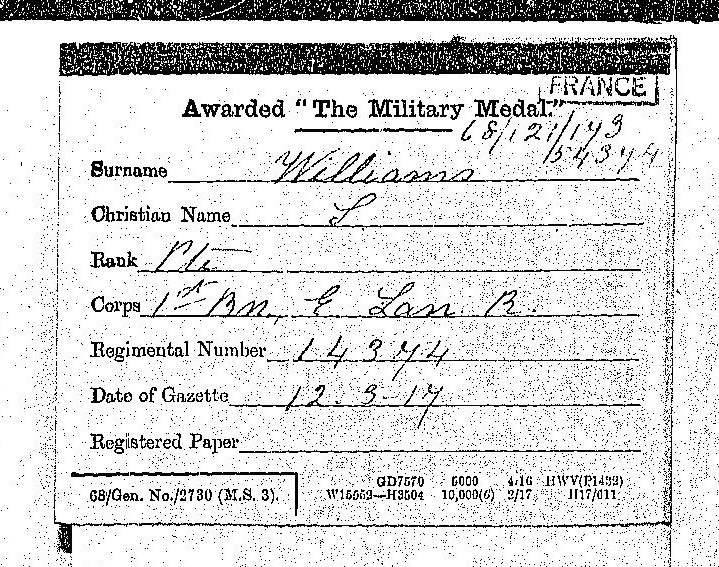 FRANCE
Awarded "The Military Medal."
68/121/173
Surname Williams
Christian Name
Rank Pte
Corps 1st Bn, E. Lan R.
Regimental Number 14374
Date of Gazette 12.3.17
Registered Paper
68/Gen. No./2730 (M.S. 3). GD7570 5000 4/16 HWV(P1432)
10,000(6) 2/17 H17/611